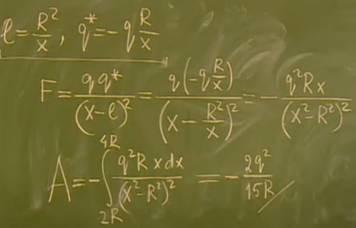 ℓ = R²/x, q* = -q R/x
F = qq*/(x-ℓ)² = q(-q R/x)/(x - R²/x)² = - q²Rx/(x²-R²)²
A = -∫_{2R}^{4R} q²Rxdx/(x²-R²)² = - 2q²/15R